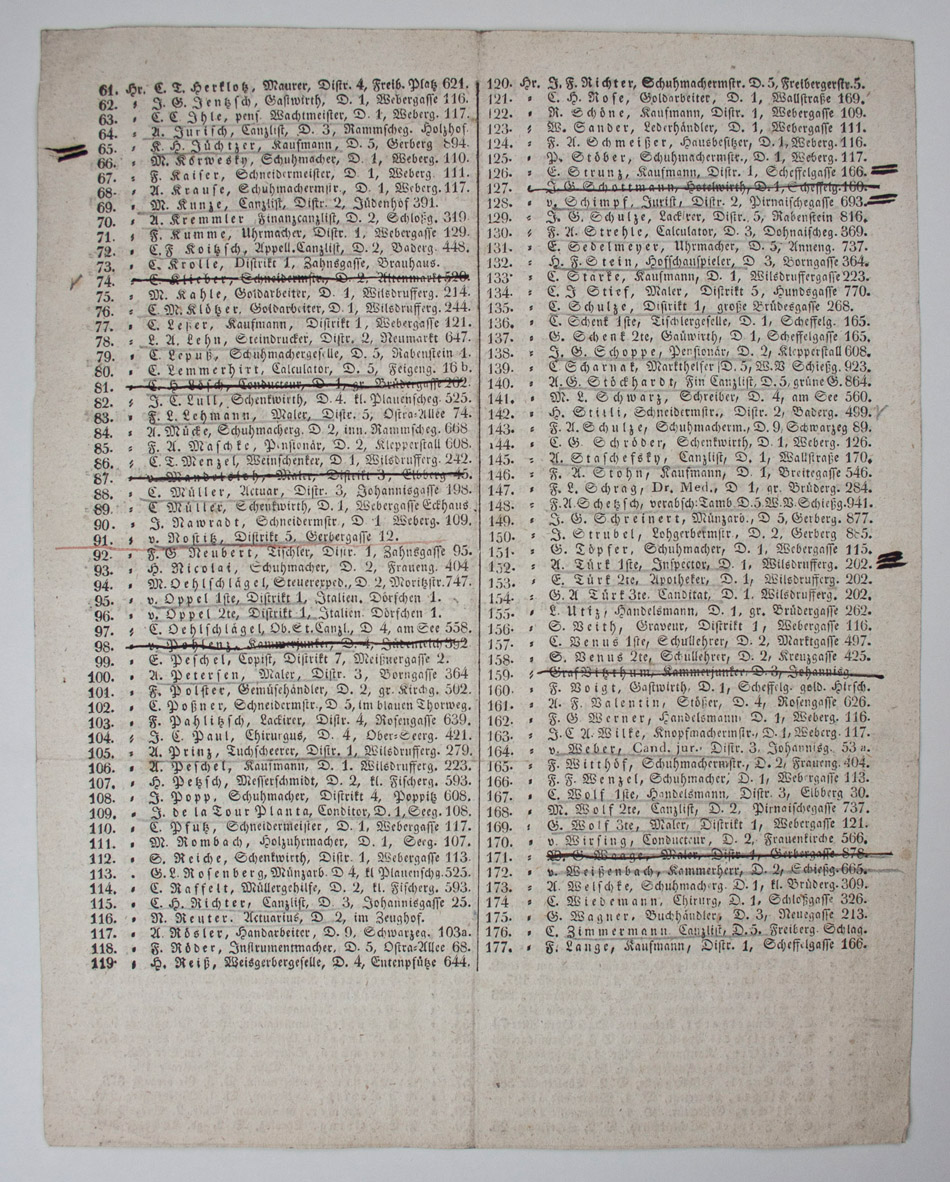 61. Hr. C. T. Herklotz, Maurer, Distr. 4, Freib. Platz 621.
62. " J. G. Jentzsch, Gastwirth, D. 1, Webergasse 116.
63. " C. C Ihle, pens. Wachtmeister, D. 1, Weberg. 117.
64. " A. Jurisch, Canzlist, D. 3, Rammscheg. Holzhof
65. " K. H. Jüchtzer, Kaufmann, D. 5, Gerberg 894.
66. " M. Körwesky, Schuhmacher, D. 1, Weberg. 110.
67. " F. Kaiser, Schneidermeister, D. 1, Weberg. 111.
68. " A. Krause, Schuhmachermstr., D. 1, Weberg. 117.
69. " M. Kunze, Canzlist, Distr. 2, Jüdenhof 391.
70. " A. Kremmler Finanzcanzlist, D. 2, Schloßg. 319
71. " F. Kumme, Uhrmacher, Distr. 1, Webergasse 129.
72. " C. F Koitzsch, Appell.Canzlist, D. 2, Baderg. 448.
73. " C. Krolle, Distrikt 1, Zahnsgasse, Brauhaus.
74. " C. Klieber, Schneidermstr., D. 2, Altenmarkt 526.
75. " M. Kahle, Goldarbeiter, D. 1, Wilsdrufferg. 214.
76. " C. M. Klötzer, Goldarbeiter, D. 1, Wilsdrufferg. 244.
77. " C. Leßer, Kaufmann, Distrikt 1, Webergasse 121.
78. " L. A. Lehn, Steindrucker, Distr. 2, Neumarkt 647.
79. " C. Lepuß, Schuhmachergeselle, D. 5, Rabenstein 1.
80. " C. Lemmerhirt, Calculator, D. 5, Feigeng. 16 b.
81. " C. H. Lösch, Conducteur, D. 1, gr. Brüdergasse 262.
82. " J. C. Lull, Schenkwirth, D. 4. kl. Plauenscheg. 525.
83. " F. L. Lehmann, Maler, Distr. 5, Ostra-Allee 74.
84. " A. Mücke, Schuhmacherg. D. 2, inn. Rammscheg. 668
85. " F. A. Maschke, Pensionär, D. 2, Klepperstall 608.
86. " C. T. Menzel, Weinschenker, D. 1, Wilsdrufferg. 242.
87. " v. Mandelsloh, Maler, Distrikt 3, Elbberg 45.
88. " C. Müller, Actuar, Distr. 3, Johannisgasse 198.
89. " C Müller, Schenkwirth, D. 1, Webergasse Eckhaus
90. " J. Nawradt, Schneidermstr., D 1 Weberg. 109.
91. " v. Nostitz, Distrikt 5, Gerbergasse 12.
92. " F. G Neubert, Tischler, Distr. 1, Zahnsgasse 95.
93. " H. Nicolai, Schuhmacher, D. 2, Fraueng. 404
94. " M. Oehlschlägel, Steuerexped., D. 2, Moritzstr. 747.
95. " v. Oppel 1ste, Distrikt 1, Italien. Dörfchen 1.
96. " v. Oppel 2te, Distrikt 1, Italien. Dörfchen 1.
97. " C. Oehlschlägel, Ob. St. Canzl., D 4, am See 558.
98. " v. Pohlenz, Kammerjunker, D. 4, Jüdenteich 592
99. " E. Peschel, Copist, Distrikt 7, Meißnergasse 2.
100. " A. Petersen, Maler, Distr. 3, Borngasse 364
101. " F. Polster, Gemüsehändler, D. 2, gr. Kirchg. 502.
102. " C. Poßner, Schneidermstr., D 5, im blauen Thorweg.
103. " F. Pahlitzsch, Lackirer, Distr. 4, Rosengasse 639.
104. " J. C. Paul, Chirurgus, D. 4, Ober-Seerg. 421.
105. " A. Prinz, Tuchscheerer, Distr. 1, Wilsdrufferg. 279.
106. " A. Peschel, Kaufmann, D. 1. Wilsdrufferg. 223.
107. " H. Petzsch, Messerschmidt, D. 2, kl. Fischerg. 593.
108. " J. Popp, Schuhmacher, Distrikt 4, Poppitz 608.
109. " J. de la Tour Planta, Conditor, D. 1, Seeg. 108.
110. " C. Pfütz, Schneidermeister, D. 1, Webergasse 117.
111. " M. Rombach, Holzuhrmacher, D. 1, Seerg. 107.
112. " S. Reiche, Schenkwirth, D. 1, Webergasse 113
113. " G. L. Rosenberg, Münzarb. D 4, kl Plauenschg. 525.
114. " C. Raffelt, Müllergehilfe, D. 2, kl. Fischerg. 593.
115. " C. H. Richter, Canzlist, D. 3, Johannisgasse 25.
116. " N. Reuter. Actuarius, D 2, im Zeughof.
117. " A. Rösler, Handarbeiter, D. 9, Schwarzeg. 103a.
118. " F. Röder, Instrumentmacher, D. 5, Ostra-Allee 68.
119 " H. Reiß, Weisgerbergeselle, D. 4, Entenpfütze 644.
120. Hr. J. F. Richter, Schuhmachermstr. D. 5, Freibergerstr. 5.
121. " C. H. Rose, Goldarbeiter, D. 1, Wallstraße 169.
122. " R. Schöne, Kaufmann, Distr. 1, Webergasse 109.
123. " W. Sander, Lederhändler, D. 1, Webergasse 111.
124. " F. A Schmeißer, Hausbesitzer, D. 1, Weberg. 116.
125. " P. Stöber, Schuhmachermstr., D. 1, Weberg. 117.
126. " E. Strunz, Kaufmann, D. 1, Scheffelgasse 166.
127. " J. G. Schottmann, Hotelwirth, D. 1, Scheffelg. 160.
128. " v. Schimpf, Jurist, Distr. 2, Pirnaischegasse 693.
129. " J. G. Schulze, Lackirer, Distr. 5, Rabenstein 816.
130. " F. A. Strehle, Calculator, D. 3, Dohnaischeg. 369.
131. " E. Sedelmeyer, Uhrmacher, D. 5, Anneng. 737.
132. " H. F. Stein, Hofschauspieler, D 3, Borngasse 364.
133. " C. Starke, Kaufmann, D. 1, Wilsdruffergasse 223.
134. " C. J Stief, Maler, Distr. 5, Hundsgasse 770.
135. " C. Schulze, Distrikt 1, große Brüdesgasse 268.
136. " C. Schenk 1ste, Tischlergeselle, D. 1, Scheffelg. 165.
137. " G. Schenk 2te, Gaûwirth, D. 1, Scheffelg. 165.
138. " J. G. Schoppe, Pensionär, D. 2, Klepperstall 608.
139. " C Scharnak, Markthelfer, D. 5, W.V Schießg. 923.
140. " A. G. Stöckhardt, Fin Canzlist, D. 5, grüne G. 864.
141. " M. L Schwarz, Schreiber, D. 4, am See 560.
142. " H. Stilli, Schneidermstr., Distr. 2, Baderg. 499.
143. " F. A. Schulze, Schuhmacherm., D. 9, Schwarzeg 89.
144. " C. G. Schröder, Schenkwirth, D. 1, Weberg. 126.
145. " A. Staschefsky, Canzlist, D. 1, Wallstraße 170.
146. " F. A Stohn, Kaufmann, D. 1, Breitegasse 546.
147. " F. L. Schrag, Dr. Med., D. 1, gr. Brüderg. 284.
148. " F. A. Schetzer, verabsch: Tamb D.5.W.V. Schießg. 941.
149. " J. G. Schreinert, Münzarb., D 5, Gerberg. 877.
150. " J. Strubel, Lohgerbermstr., D. 5, Gerberg. 885.
151. " G. Töpfer, Schuhmacher, D. 1, Webergasse 115.
152. " A. Türk 1ste, Inspector, D. 1, Wilsdrufferg. 202.
153. " E. Türk 2te, Apotheker, D. 1, Wilsdrufferg. 202.
154. " G. A Türk 3te. Canditat, D. 1. Wilsdrufferg. 202.
155. " L. Utiz, Handelsmann, D. 1, gr. Brüdergasse 262.
156. " S. Veith, Graveur, Distrikt 1, Webergasse 116.
157. " C. Venus 1ste, Schullehrer, D. 2, Marktgasse 497.
158. " S. Venus 2te, Schullehrer, D. 2, Kreuzgasse 425.
159. " Graf Vitzthum, Kammerjunker D. 3, Johannisg.
160. " F. Voigt, Gastwirth. D. 1, Scheffelg. gold. Hirsch.
161. " A. F. Valentin, Stößer, D. 4, Rosengasse 626.
162. " F. G Werner, Handelsmann D. 1, Weberg. 116.
163. " J. C A. Wilke, Knopfmachermstr., D. 1, Weberg. 117.
164. " v. Weber, Cand. jur. Distr. 3. Johannisg. 53 a.
165. " F. Witthöf, Schuhmachermstr., D. 2, Fraueng. 404.
166. " F. F. Wenzel, Schuhmacher, D. 1, Webergasse 113.
167. " C. Wolf 1ste, Handelsmann, Distr. 3, Elbberg 30.
168. " M. Wolf 2te, Canzlist, D. 2, Pirnaischegasse 737.
169. " G. Wolf 3te, Maler, Distrikt 1, Webergasse 121.
170. " v. Wirsing, Conducteur, D. 2, Frauenkirche 566.
171. " W. G. Waage, Maler, Distr. 1, Gerbergasse 878.
172. " v. Weißenbach, Kammerherr, D. 2, Schießg. 665.
173. " A. Welschke, Schuhmacherg. D. 1, kl. Brüderg. 309.
174 " C. Wiedemann, Chirurg, D. 1, Schloßgasse 326.
175. " G. Wagner, Buchhändler, D. 3, Neuegasse 213.
176. " C. Zimmermann Canzlist, D. 5. Freiberg. Schlag.
177. " F. Lange, Kaufmann, Distr. 1, Scheffelgasse 166.